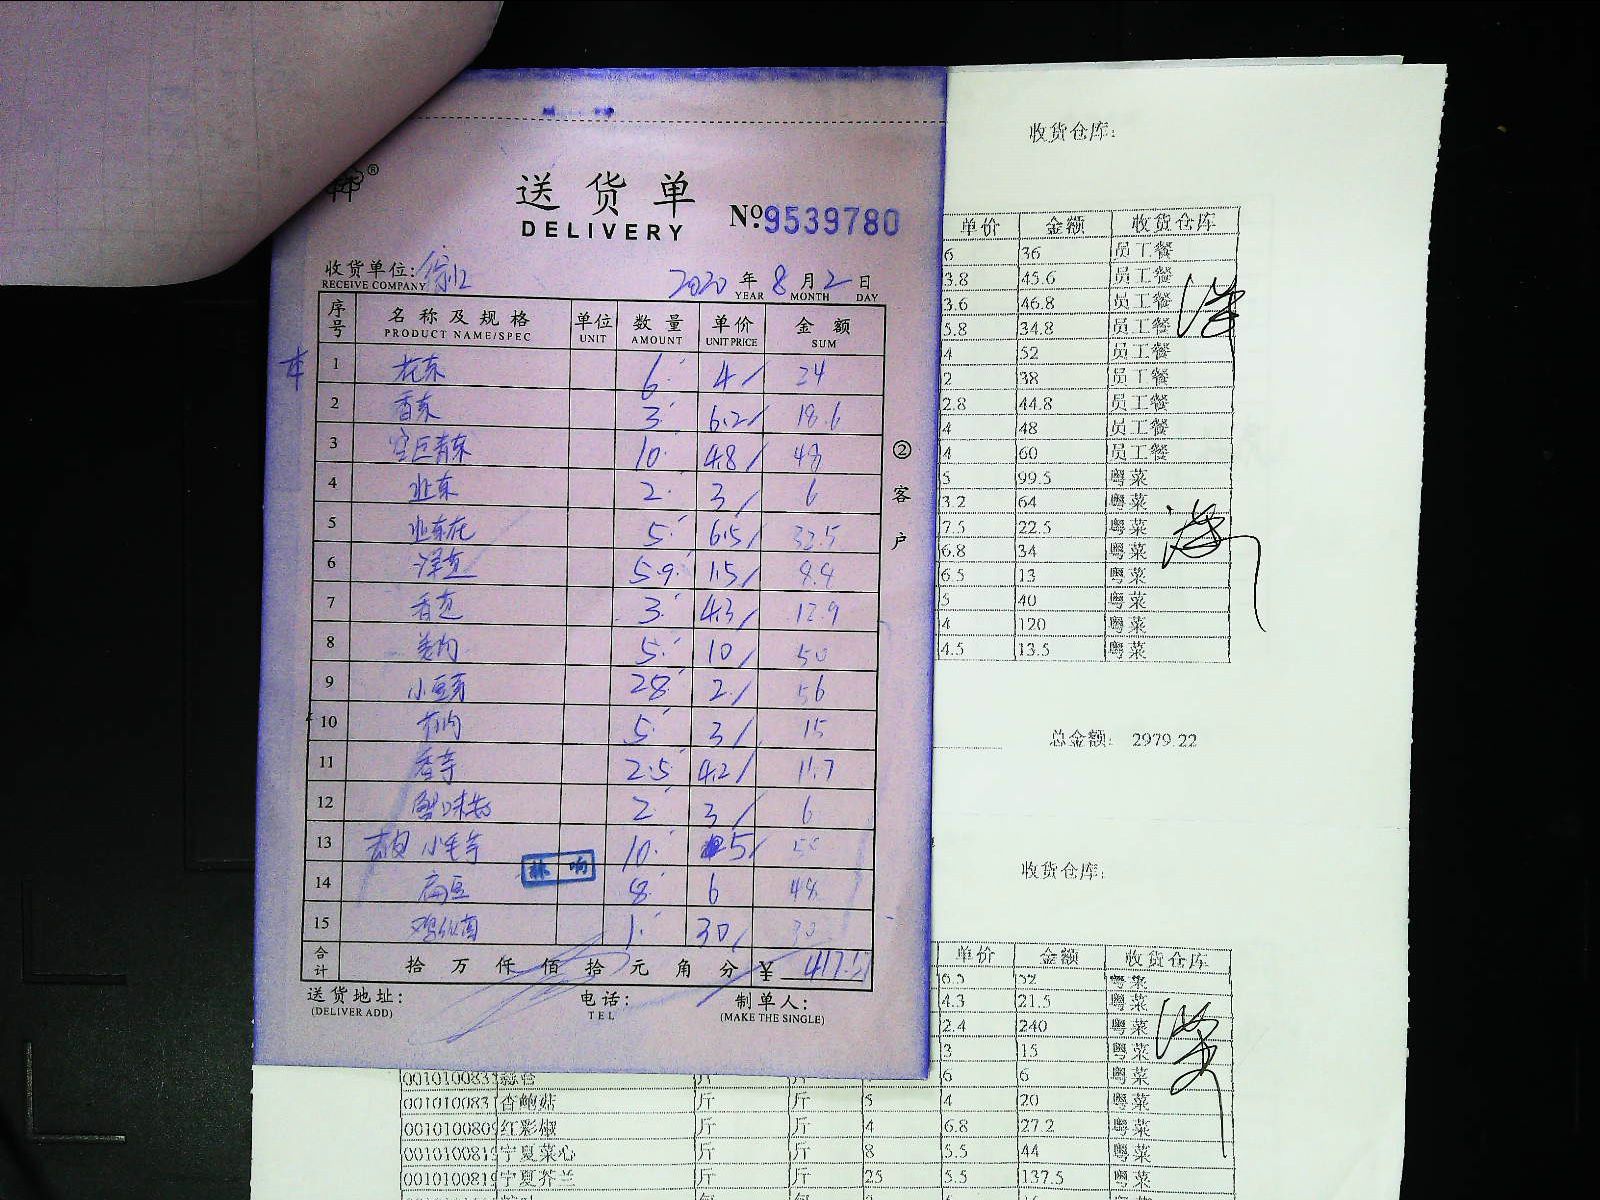 送货单
DELIVERY
№9539780
收货单位:
RECEIVE COMPANY
2020 年 8 月 2 日
YEAR MONTH DAY
序号 名称及规格 单位 数量 单价 金额
PRODUCT NAME/SPEC UNIT AMOUNT UNIT PRICE SUM
1 6 4 24
2 3 6.2 18.6
3 10 4.8 48
4 2 3 6
5 5 6.5 32.5
6 5.9 1.5 8.8
7 香 3 4.3 12.9
8 5 10 50
9 小豆芽 28 2 56
10 5 3 15
11 2.5 4.2 11.7
12 蟹味菇 2 3 6
13 10 5
14 扁豆 8 6 48
15 1 30 30
林响
合计 拾万仟佰拾元角分 ¥
②客户
送货地址:
(DELIVER ADD)
电话:
TEL
制单人:
(MAKE THE SINGLE)
收货仓库:
单价 金额 收货仓库
6 36 员工餐
3.8 45.6 员工餐
3.6 46.8 员工餐
5.8 34.8 员工餐
4 52 员工餐
2 38 员工餐
2.8 44.8 员工餐
4 48 员工餐
4 60 员工餐
5 99.5 粤菜
3.2 64 粤菜
7.5 22.5 粤菜
6.8 34 粤菜
6.5 13 粤菜
5 40 粤菜
4 120 粤菜
4.5 13.5 粤菜
总金额: 2979.22
收货仓库:
单价 金额 收货仓库
6.5 52 粤菜
4.3 21.5 粤菜
2.4 240 粤菜
3 15 粤菜
6 6 粤菜
001010083 杏鲍菇 斤 斤 5 4 20 粤菜
001010080 红彩椒 斤 斤 4 6.8 27.2 粤菜
001010081 宁夏菜心 斤 斤 8 5.5 44 粤菜
001010081 宁夏芥兰 斤 斤 25 5.5 137.5 粤菜